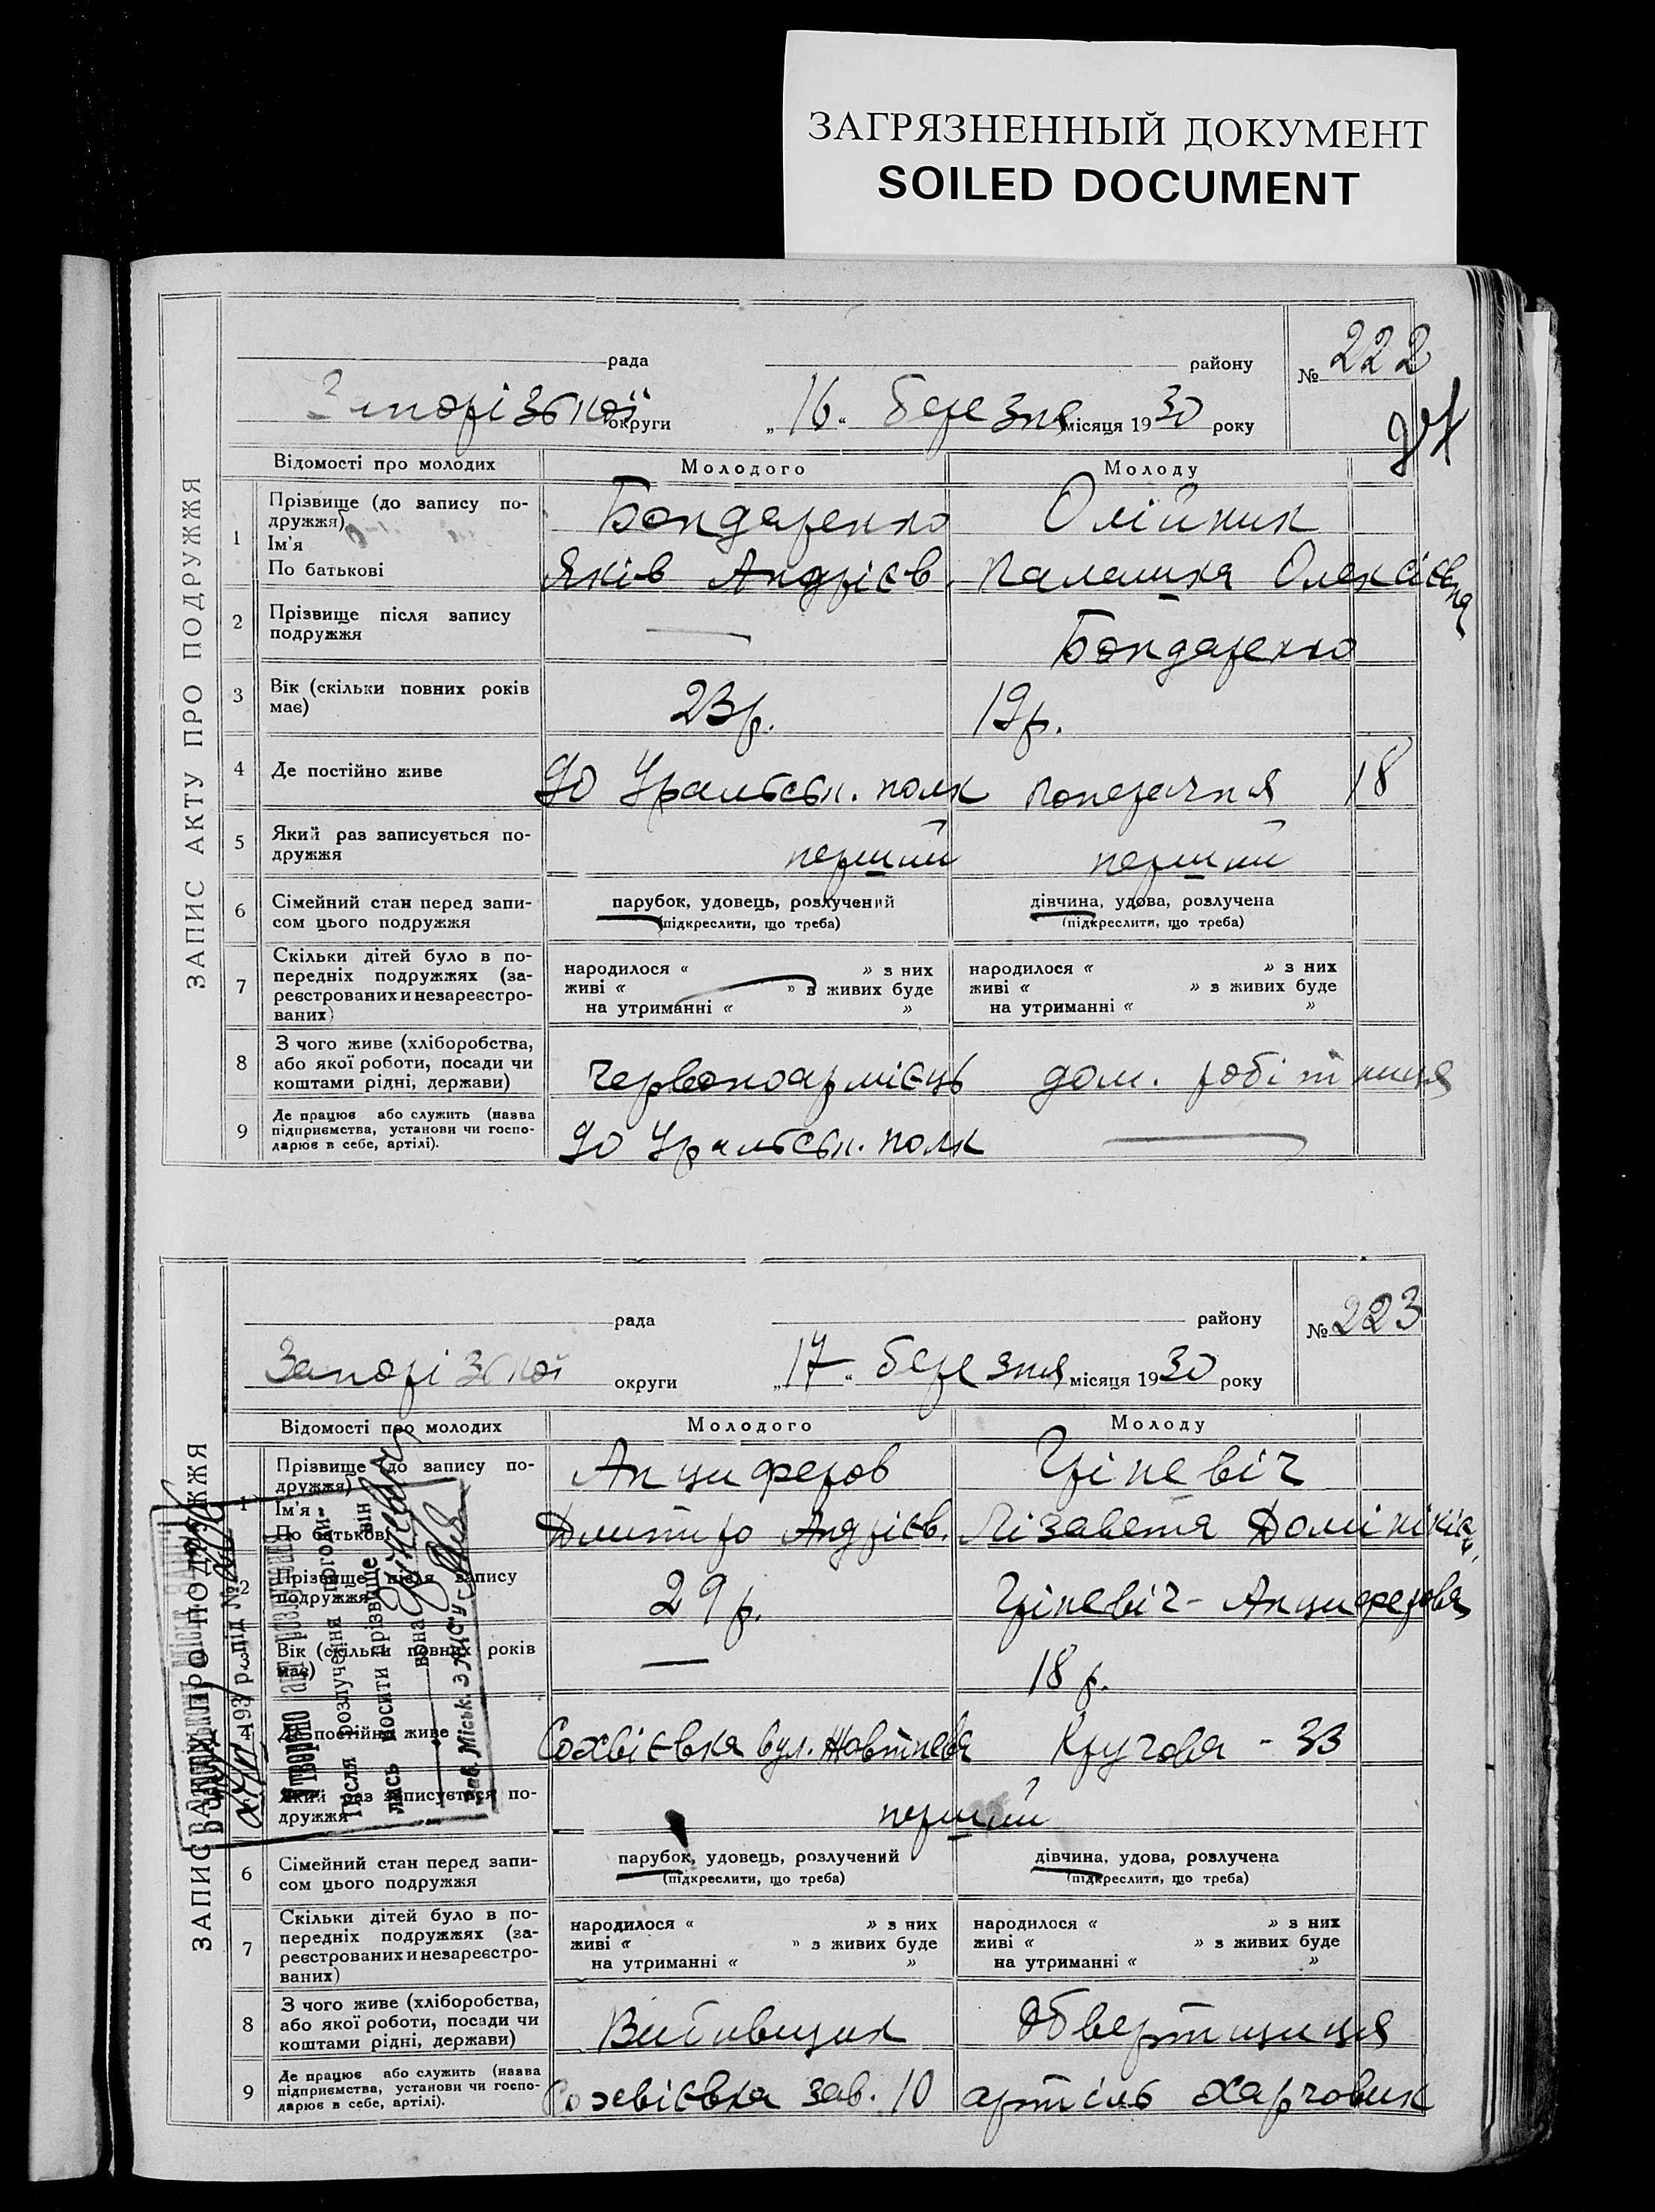 ЗАГРЯЗНЕННЫЙ ДОКУМЕНТ
SOILED DOCUMENT
ЗАПИС АКТУ ПРО ПОДРУЖЖЯ
рада району № 222
Запорізької округи „16“ березня місяця 1930 року
Відомості про молодих Молодого Молоду
1 Прізвище (до запису по-
дружжя) Бондаренко Олійник
Ім'я
По батькові Яків Андрієв. Палашка Олексієвна
2 Прізвище після запису
подружжя — Бондаренко
3 Вік (скільки повних років
має) 23 р. 19 р.
4 Де постійно живе 90 Уральськ. полк Поперечня 18
5 Який раз записується по-
дружжя перший перший
6 Сімейний стан перед запи-
сом цього подружжя
парубок, удовець, розлучений дівчина, удова, розлучена
(підкреслити, що треба) (підкреслити, що треба)
7 Скільки дітей було в по-
передніх подружжях (за-
реєстрованих и незареєстро-
ваних)
народилося « » з них народилося « » з них
живі « » з живих буде живі « » з живих буде
на утриманні « » на утриманні « »
8 З чого живе (хліборобства,
або якої роботи, посади чи
коштами рідні, держави) Червоноармієць дом. робітниця
9 Де працює або служить (назва
підприємства, установи чи госпо-
дарює в себе, артілі). 90 Уральськ. полк —
ЗАПИС АКТУ ПРО ПОДРУЖЖЯ
рада району № 223
Запорізької округи „17“ березня місяця 1930 року
Відомості про молодих Молодого Молоду
1 Прізвище (до запису по-
дружжя) Анциферов Гріневіч
Ім'я
По батькові Дмитро Андрієв. Лізавета Домінікієв.
2 Прізвище після запису
подружжя 29 р. Гріневіч-Анциферова
Вік (скільки повних років
має) — 18 р.
4 Де постійно живе Софієвка вул. Жовтнева Кругова - 33
Який раз записується по-
дружжя перший
6 Сімейний стан перед запи-
сом цього подружжя
парубок, удовець, розлучений дівчина, удова, розлучена
(підкреслити, що треба) (підкреслити, що треба)
7 Скільки дітей було в по-
передніх подружжях (за-
реєстрованих и незареєстро-
ваних)
народилося « » з них народилося « » з них
живі « » з живих буде живі « » з живих буде
на утриманні « » на утриманні « »
8 З чого живе (хліборобства,
або якої роботи, посади чи
коштами рідні, держави) Вибивщик Обвертщиця
9 Де працює або служить (назва
підприємства, установи чи госпо-
дарює в себе, артілі). зав. 10 артіль Харчовик
193 р. під №
після розлучення погоди-
лись носити прізвище він
вона
Зав. Міськ. ЗАГСУ